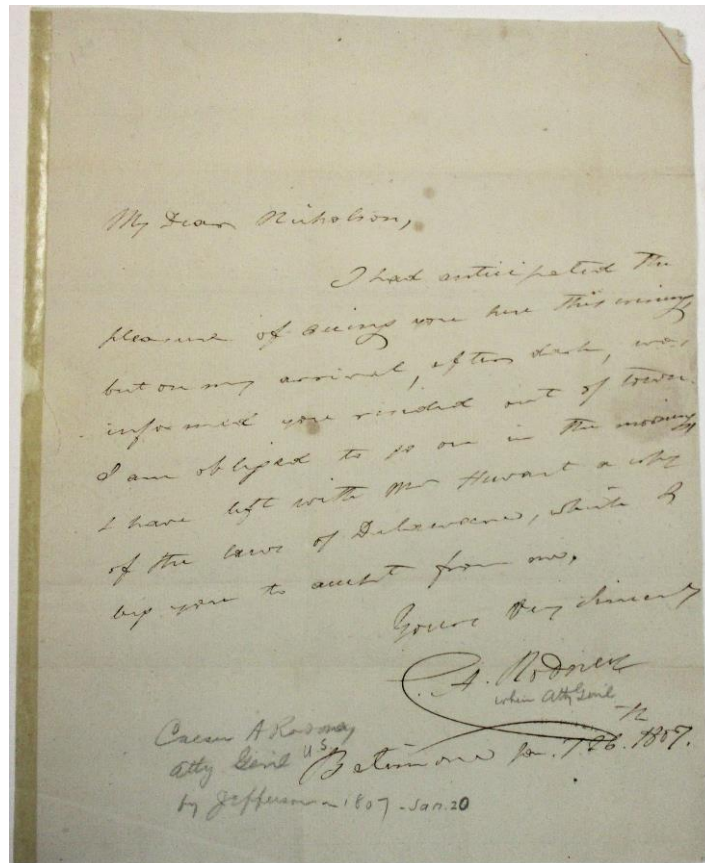 My Dear Nicholson,
I had anticipated the
pleasure of seeing you here this evening
but on my arrival, after dark, was
informed you resided out of town.
I am obliged to go on in the morning
I have left with Mr a copy
of the laws of Delaware, which I
beg you to accept from me,
Yours very sincerely
C. A. Rodney
when Atty Genl
Baltimore 1807.
Caesar A Rodney
Atty Genl U.S
by Jefferson 1807 - Jan. 20